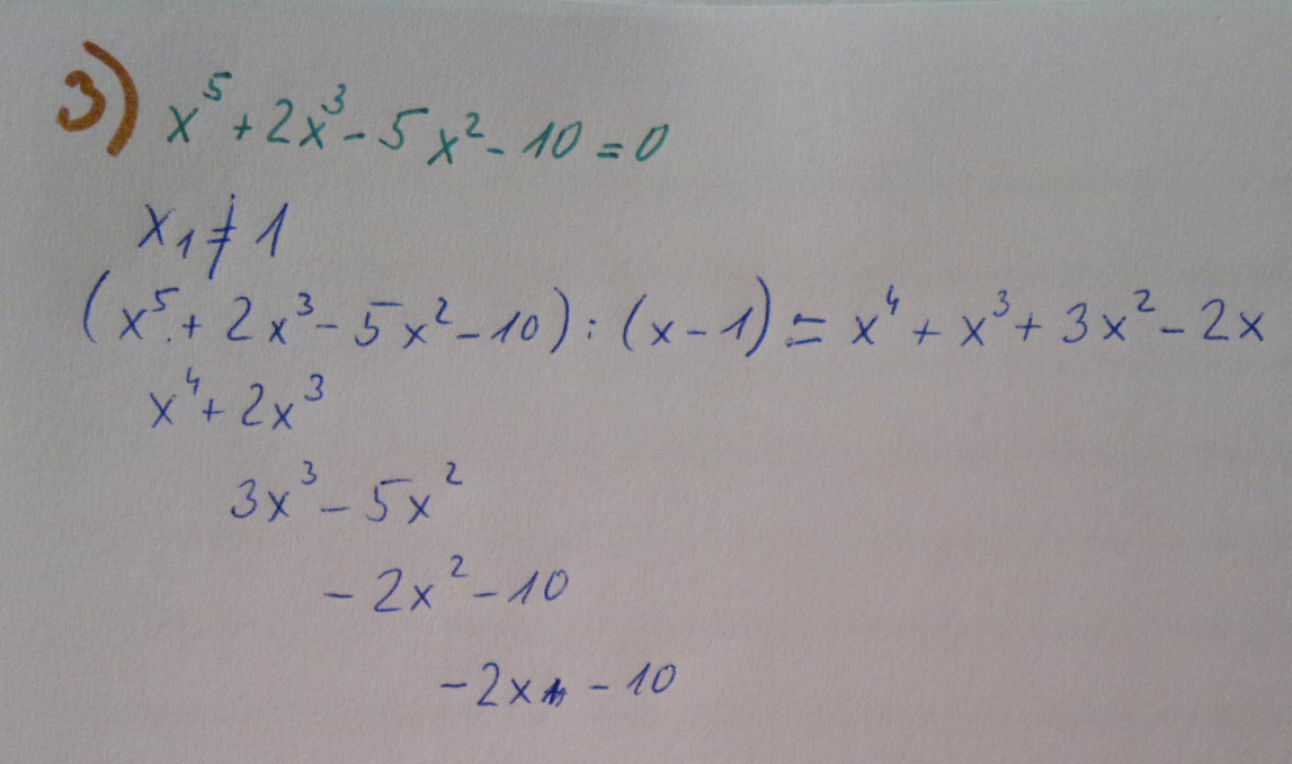 3) x⁵ + 2x³ - 5x² - 10 = 0
x₁ ≠ 1
(x⁵ + 2x³ - 5x² - 10) : (x - 1) = x⁴ + x³ + 3x² - 2x
x⁴ + 2x³
3x³ - 5x²
- 2x² - 10
- 2x - 10